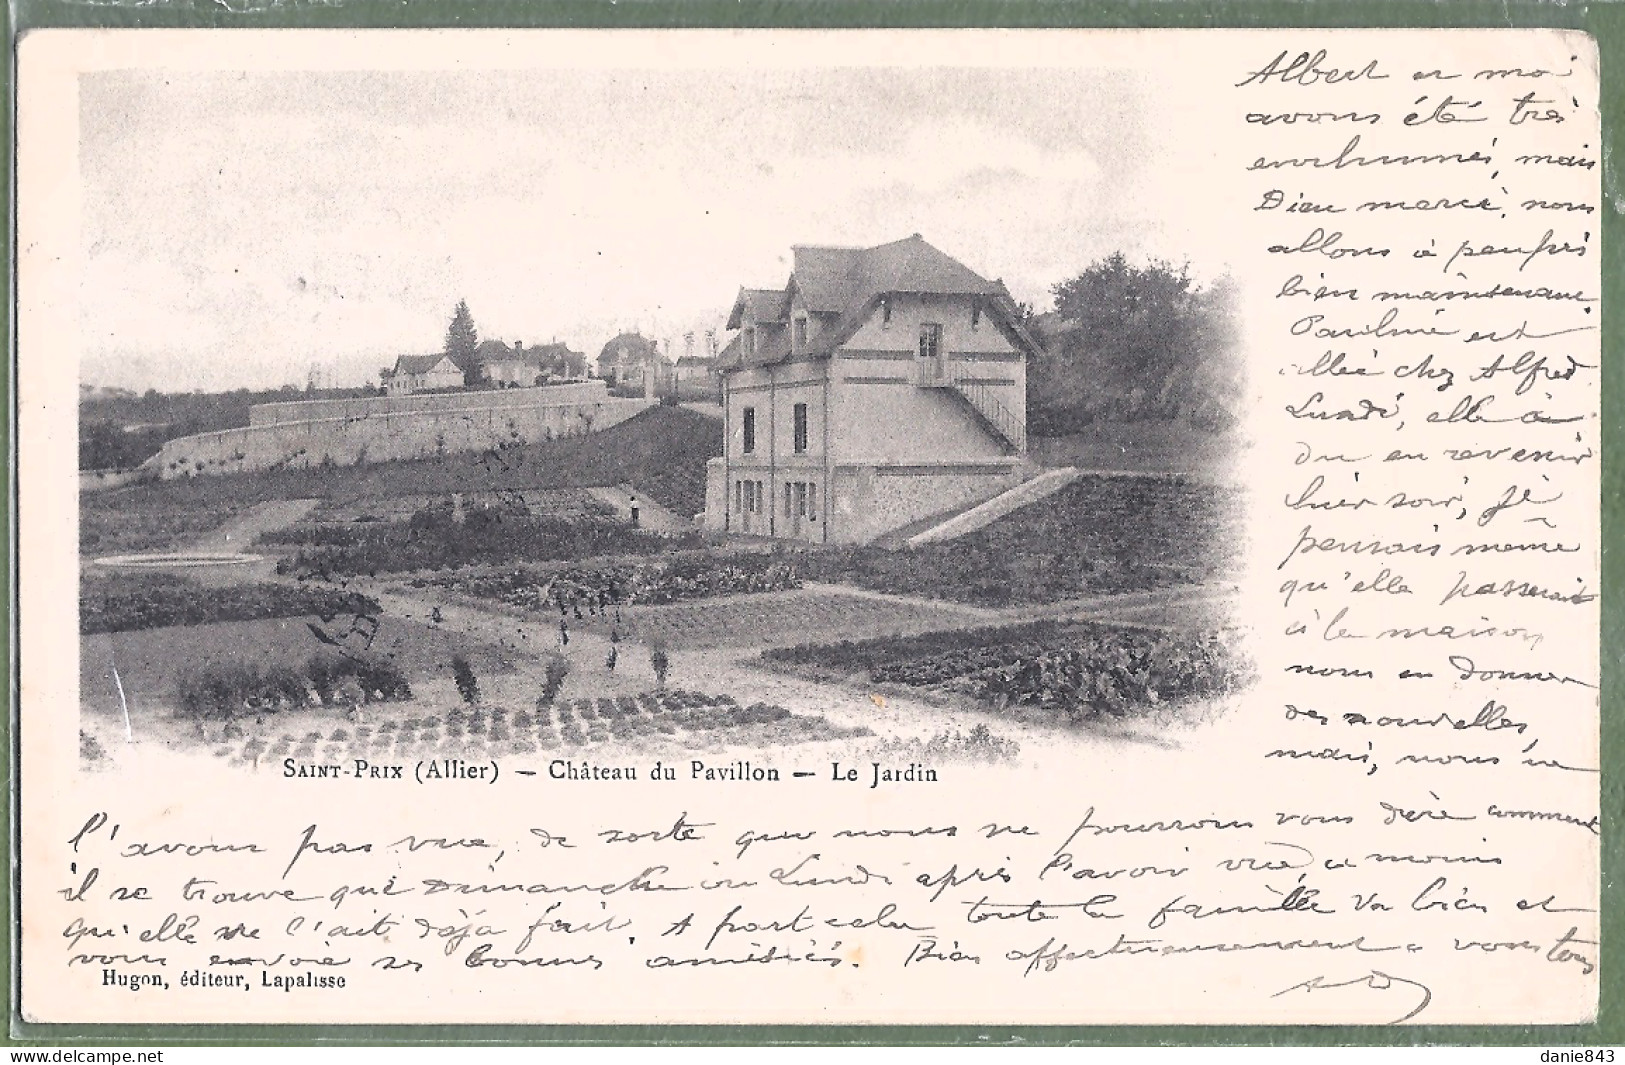 Albert et moi
avons été très
enrhumés, mais
Dieu merci, nous
allons à peu près
bien maintenant.
Pauline est
allée chez Alfred
Lundi, elle a
du en revenir
hier soir, je
pensais même
qu'elle passerait
à la maison
nous en donner
des nouvelles,
mais, nous ne
SAINT-PRIX (Allier) — Château du Pavillon — Le Jardin
l'avons pas vue, de sorte que nous ne pourrons vous dire comment
il se trouve que Dimanche ou Lundi après l'avoir vue, à moins
qu'elle ne l'ait déjà fait. A part cela toute la famille va bien et
vous envoie ses bonnes amitiés. Bien affectueusement à vous tous
Hugon, éditeur, Lapalisse
www.delcampe.net
danie843